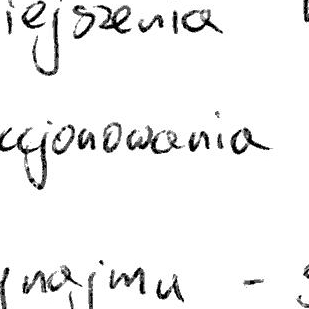 iejszenia
cjonowania
ynajmu -